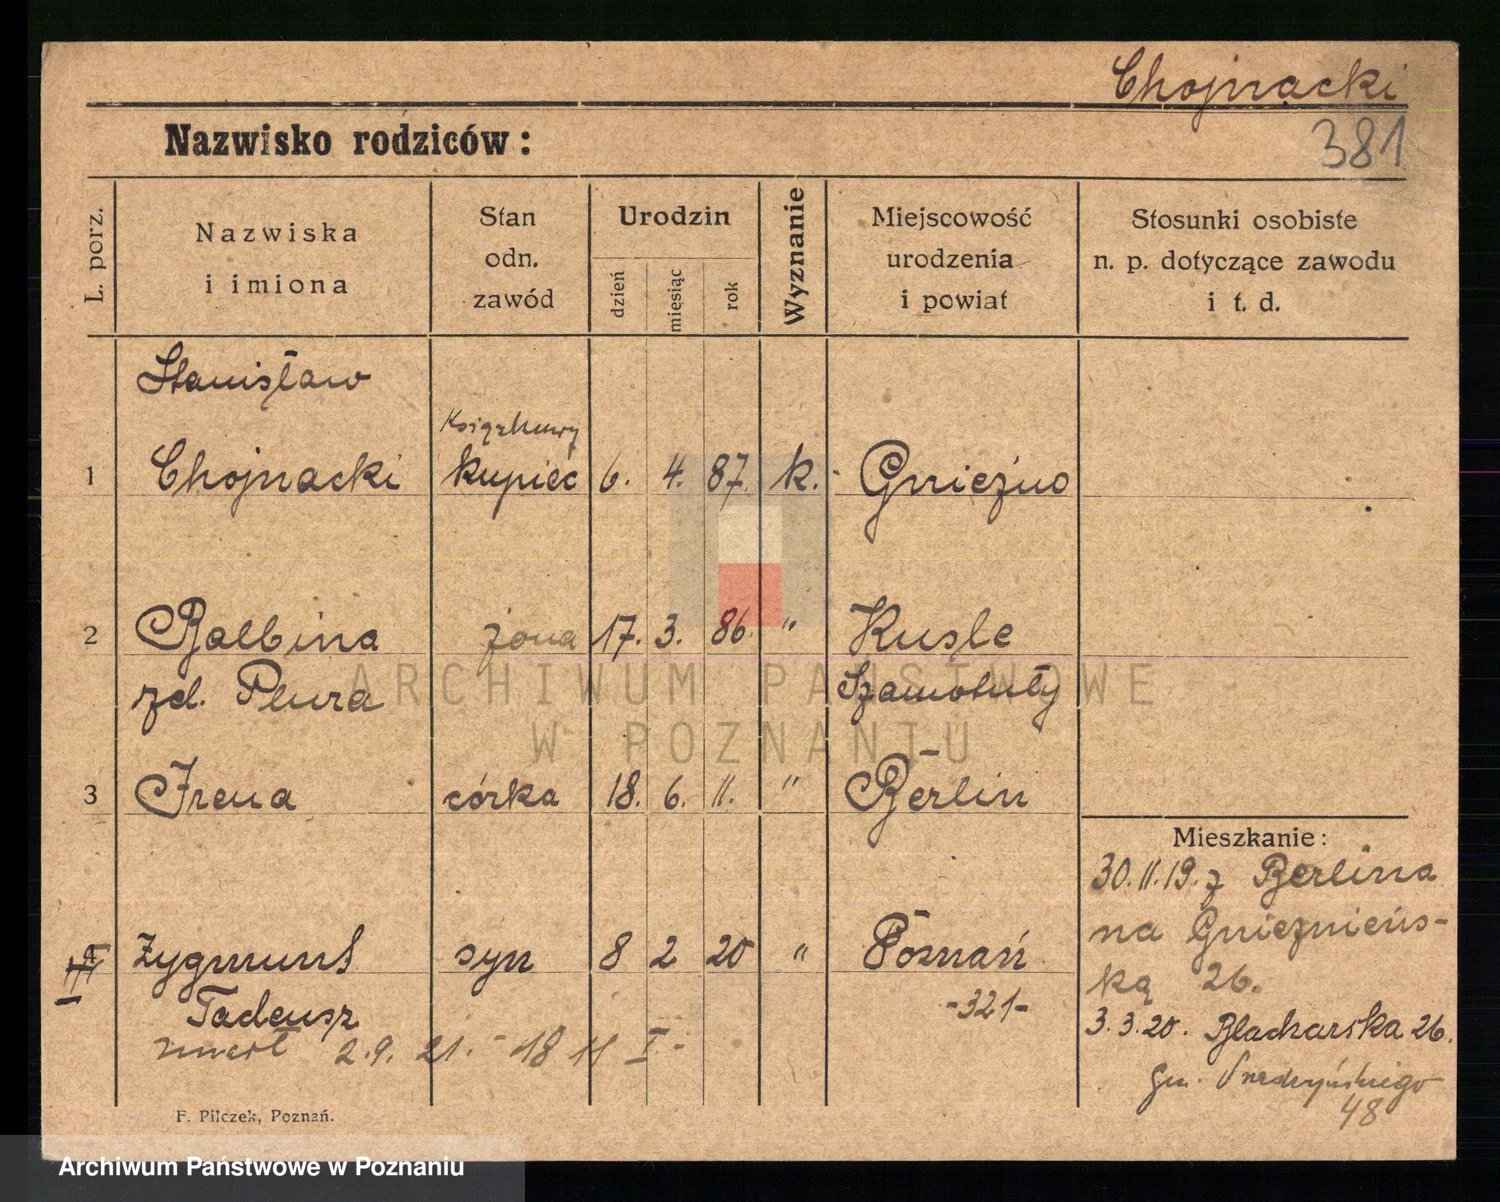 Chojnacki
381
Nazwisko rodziców:
L. porz.
Nazwiska
i imiona
Stan
odn.
zawód
Urodzin
dzień
miesiąc
rok
Wyznanie
Miejscowość
urodzenia
i powiat
Stosunki osobiste
n. p. dotyczące zawodu
i t. d.
Stanisław
Książkowy
1 Chojnacki kupiec 6. 4. 87. k. Gniezno
2 Balbina żona 17. 3. 86. " Kuśle
zd. Plura Szamotuły
3 Irena córka 18. 6. 11. " Berlin
Mieszkanie:
30.11.19. z Berlina
na Gnieźnieńs-
ką 26.
4 Zygmunt syn 8 2 20 " Poznań
Tadeusz -321-
3.3.20. Blacharska 26.
zmarł 2.9.21.- 18 11 I-
48
F. Pilczek, Poznań.
ARCHIWUM PAŃSTWOWE
W POZNANIU
Archiwum Państwowe w Poznaniu